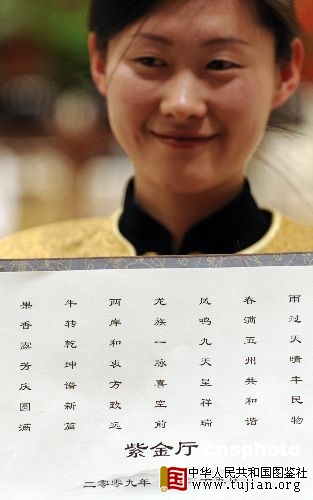 雨过天晴丰民物
春满五州共和谐
凤鸣九天呈祥瑞
龙族一脉喜空前
两岸和衷方致远
牛转乾坤谱新篇
果香蕊芳庆圆满
紫金厅
cnsphoto
二〇〇九年
中华人民共和国图鉴社
www.tujian.org